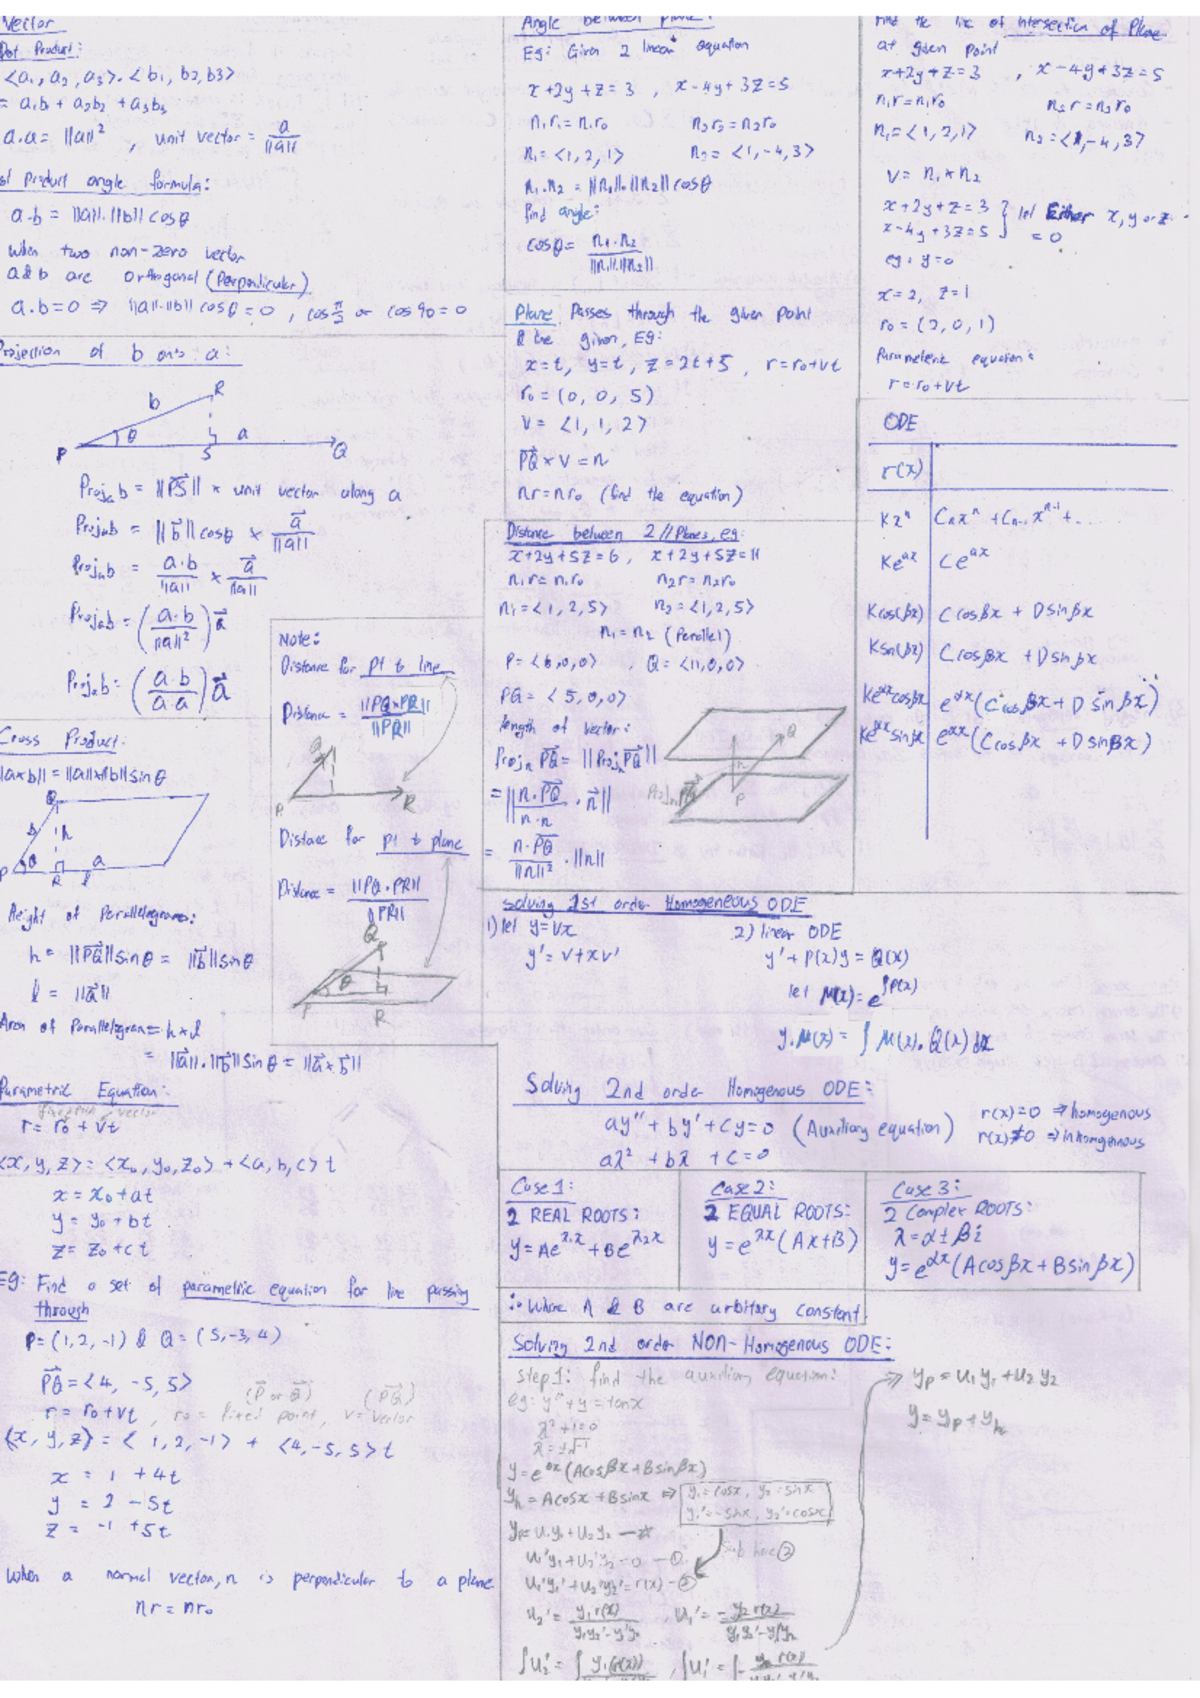 Vector
Dot Product:
<a1, a2, a3>.<b1, b2, b3>
= a1b1 + a2b2 + a3b3
a.a = ||a||² , unit vector = a/||a||
Product angle formula:
a.b = ||a||.||b|| cosθ
When two non-zero vector
a & b are orthogonal (Perpendicular)
a.b=0 ⇒ ||a||.||b|| cosθ = 0 , cos π/2 or cos 90 = 0
Projection of b onto a:
b R
θ
P S a Q
Projab = ||PS|| × unit vector along a
Projab = ||b|| cosθ × a/||a||
Projab = a.b/||a|| × a/||a||
Projab = (a.b/||a||²) a
Projab = (a.b/a.a) a
Cross Product:
||a×b|| = ||a||×||b|| sinθ
Q
b h
P θ R a
l
Height of Parallelogram:
h = ||PQ|| sinθ = ||b|| sinθ
l = ||a||
Area of Parallelogram = h×l
= ||a||.||b|| sinθ = ||a×b||
Parametric Equation:
r = r0 + vt
<x, y, z> = <x0, y0, z0> + <a, b, c> t
x = x0 + at
y = y0 + bt
z = z0 + ct
Eg: Find a set of parametric equation for line passing
through
P = (1, 2, -1) & Q = (5, -3, 4)
PQ = <4, -5, 5>
(P or Q) (PQ)
r = r0 + vt , r0 = fixed point, v = vector
(x, y, z) = <1, 2, -1> + <4, -5, 5> t
x = 1 + 4t
y = 2 - 5t
z = -1 + 5t
When a normal vector, n is perpendicular to a plane
nr = nr0
Note:
Distance for pt to line
Distance = ||PQ×PR||/||PR||
Q
P R
Distace for pt to plane
Distance = ||PQ.PR||/||PR||
Q
θ
P R
Angle between plane:
Eg: Given 2 linear equation
x+2y+z=3 , x-4y+3z=5
n1r1=n1r0 n2r2=n2r0
n1=<1,2,1> n2=<1,-4,3>
n1.n2 = ||n1||.||n2|| cosθ
find angle:
cosθ = n1.n2/||n1||.||n2||
Plane Passes through the given point
& line given, EG:
x=t, y=t, z=2t+5 , r=r0+vt
r0=(0, 0, 5)
v = <1, 1, 2>
PQ × v = n
nr=nr0 (find the equation)
Distance between 2 // Planes, eg:
x+2y+5z=6 , x+2y+5z=11
n1r=n1r0 n2r=n2r0
n1=<1,2,5> n2=<1,2,5>
n1=n2 (Parallel)
P=<6,0,0> , Q=<11,0,0>
PQ = <5,0,0>
length of vector:
Projn PQ = ||Projn PQ||
= ||n.PQ/n.n . n||
= n.PQ/||n||² . ||n||
Q
h
ProjnPQ P
Find the line of intersection of Plane
at given point
x+2y+z=3 , x-4y+3z=5
n1r=n1r0 n2r=n2r0
n1=<1,2,1> n2=<1,-4,3>
v = n1×n2
x+2y+z=3
x-4y+3z=5 } let Either x, y or z = 0
eg: y=0
x=2, z=1
r0=(2,0,1)
Parametric equation:
r=r0+vt
ODE
r(x)
Kxⁿ Cnxⁿ + Cn-1 xⁿ⁻¹ + ...
Ke^ax Ce^ax
Kcos(βx) Ccosβx + Dsinβx
Ksin(βx) Ccosβx + Dsinβx
Ke^αx cosβx e^αx (Ccosβx + D sinβx)
Ke^αx sinβx e^αx (Ccosβx + D sinβx)
Solving 1st order Homogeneous ODE
1) let y=vx
y' = v+xv'
2) linear ODE
y' + P(x)y = Q(x)
let μ(x) = e^∫P(x)
y.μ(x) = ∫ μ(x).Q(x) dx
Solving 2nd order Homogenous ODE:
ay'' + by' + cy = 0 (Auxiliary equation)
aλ² + bλ + c = 0
r(x)=0 ⇒ homogenous
r(x)≠0 ⇒ inhomogenous
Case 1:
2 REAL ROOTS:
y = Ae^λ1x + Be^λ2x
Case 2:
2 EQUAL ROOTS:
y = e^λx (Ax+B)
Case 3:
2 Complex ROOTS:
λ = α ± βi
y = e^αx (Acosβx + Bsinβx)
∴ Where A & B are arbitary constant
Solving 2nd order NON-Homogenous ODE:
step 1: find the auxiliary equation:
eg: y''+y = tanx
λ²+1=0
λ=±√-1
y = e^0x (Acosβx + Bsinβx)
yh = Acosx + Bsinx ⇒ y1=cosx, y2=sinx
y1'=-sinx, y2'=cosx
yp = u1y1 + u2y2
u1'y1 + u2'y2 = 0 - ①
u1'y1' + u2'y2' = r(x) - ②
Sub into ②
u2' = y1r(x)/y1y2'-y1'y2 , u1' = -y2r(x)/y1y2'-y1'y2
∫u2' = ∫ y1(r(x)) , ∫u1' = ∫ - y2 r(x)
⇒ yp = u1y1 + u2y2
y = yp + yh